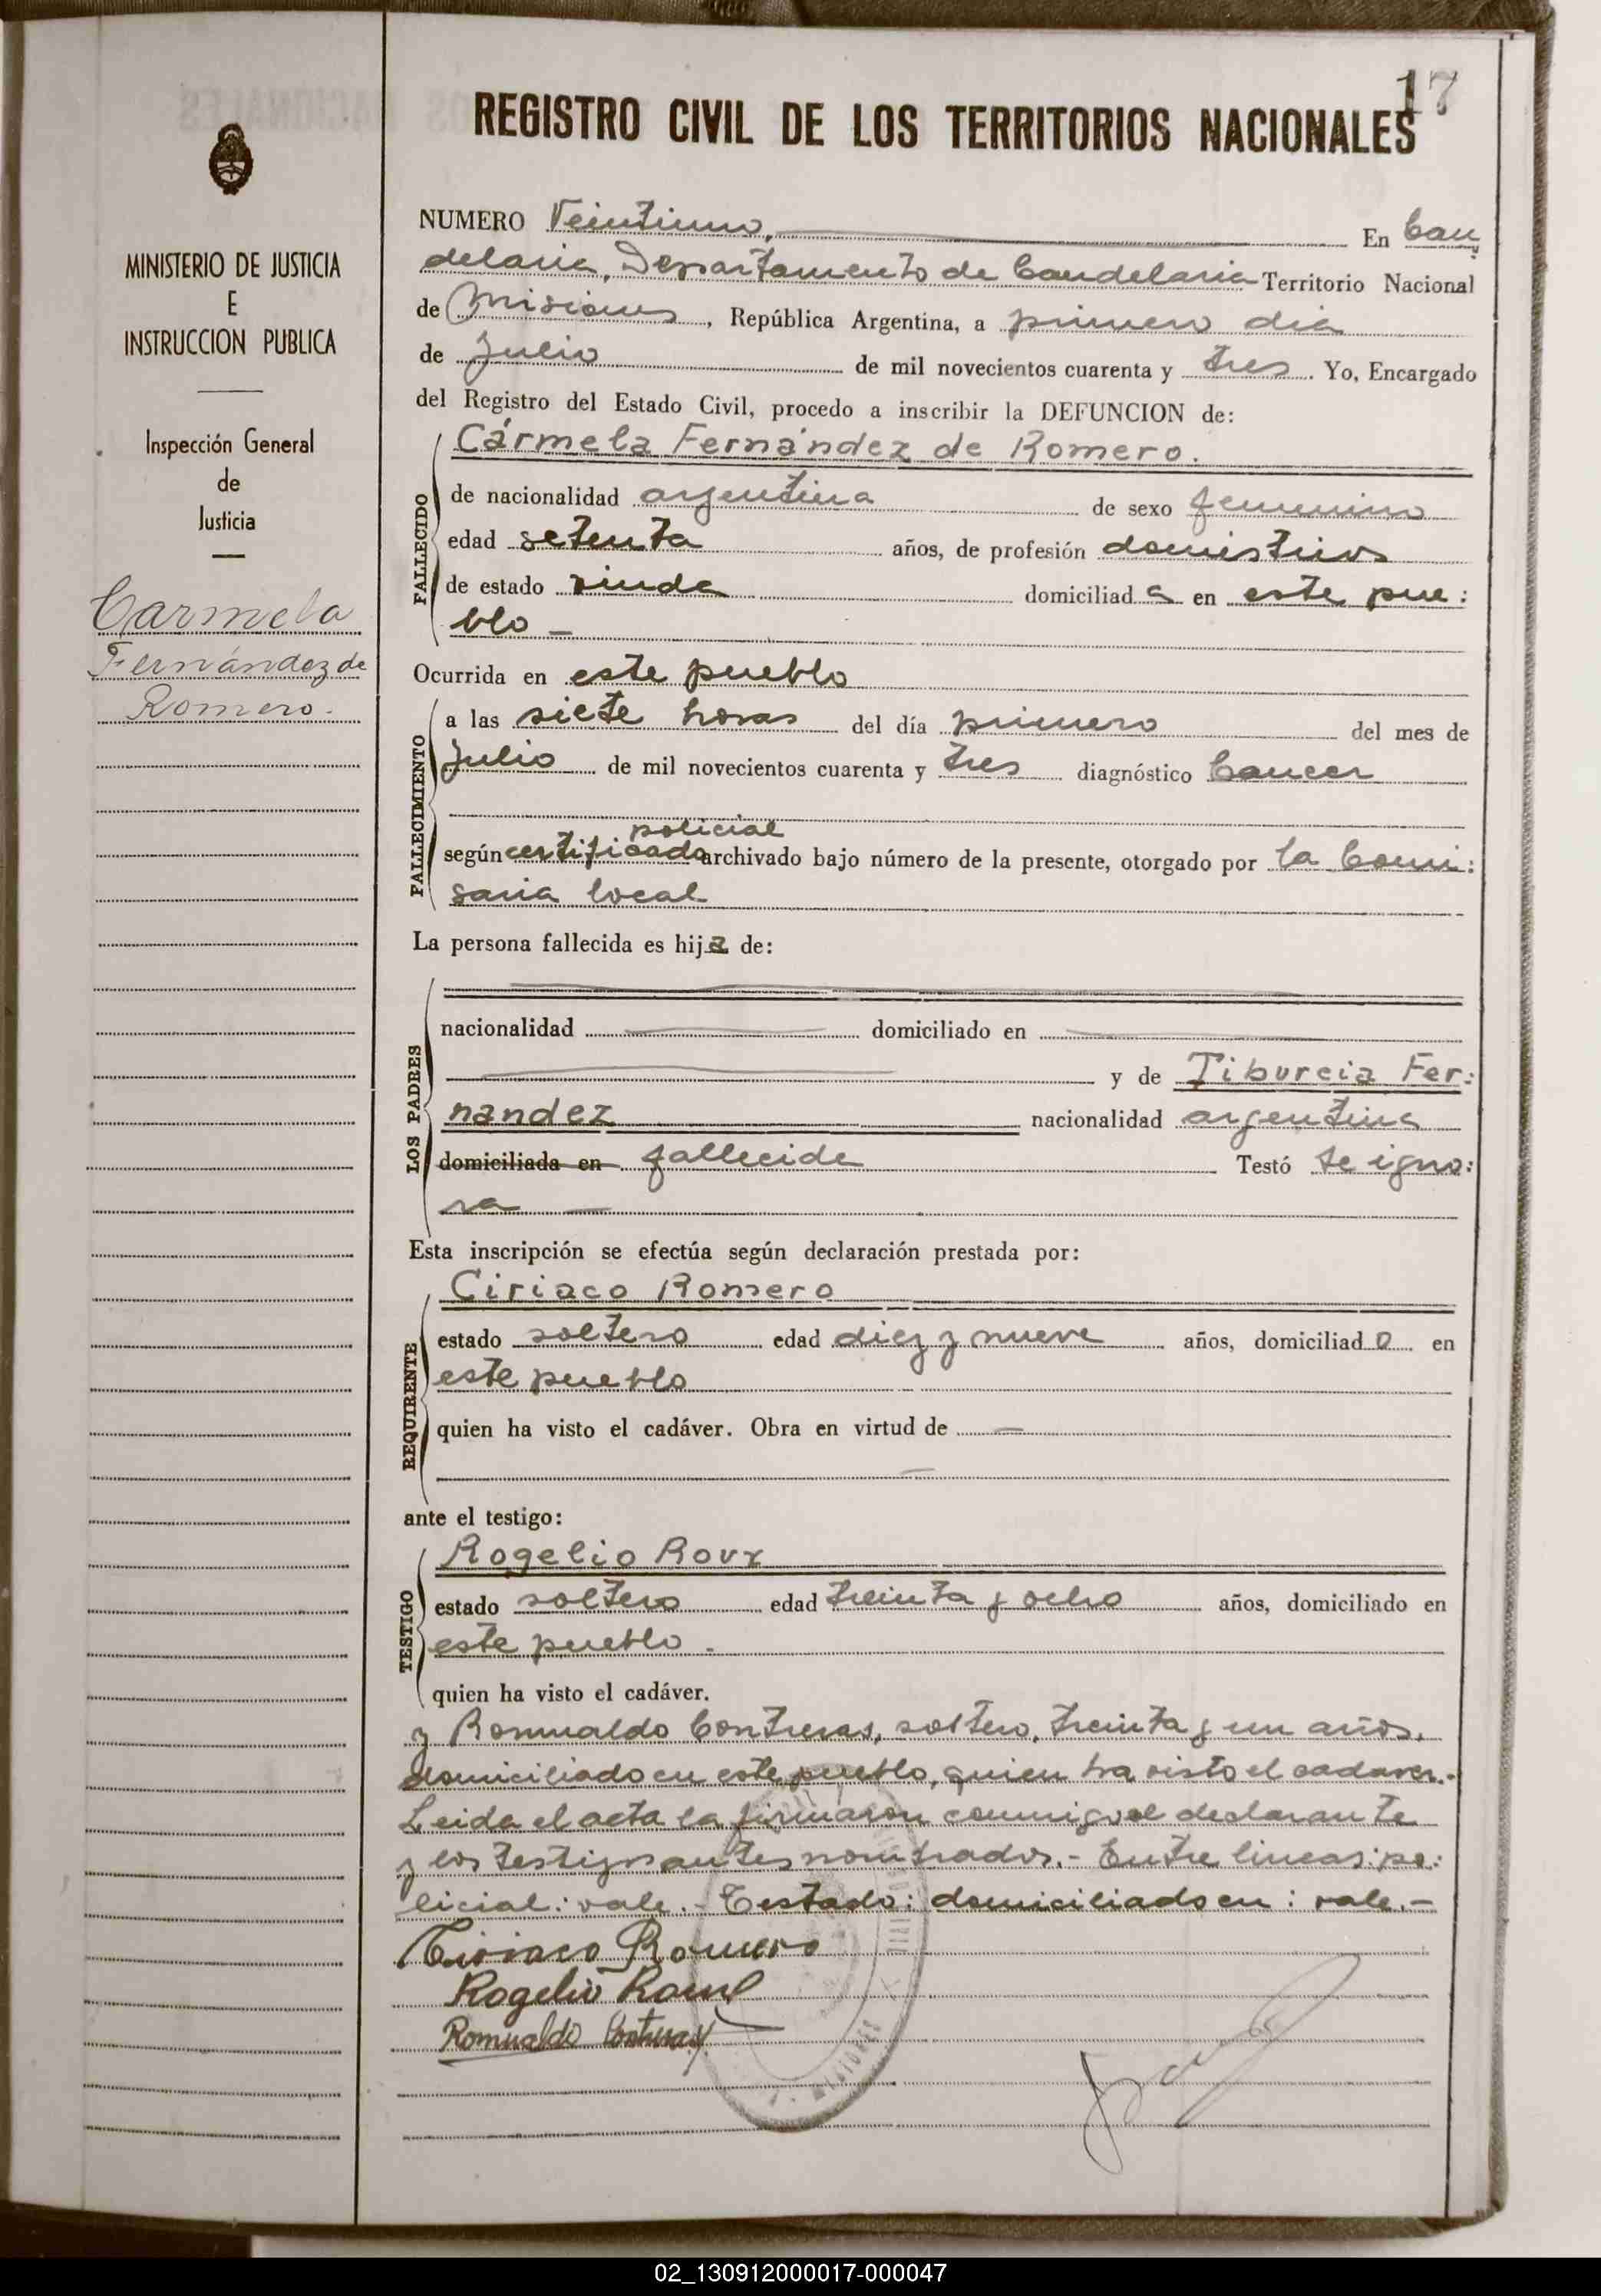 17
REGISTRO CIVIL DE LOS TERRITORIOS NACIONALES
MINISTERIO DE JUSTICIA
E
INSTRUCCION PUBLICA
Inspección General
de
Justicia
Carmela
Fernández de
Romero.
NUMERO Veintiuno, En Can
delaria, Departamento de Candelaria Territorio Nacional
de Misiones, República Argentina, a primero dia
de Julio de mil novecientos cuarenta y tres. Yo, Encargado
del Registro del Estado Civil, procedo a inscribir la DEFUNCION de:
FALLECIDO
Cármela Fernández de Romero.
de nacionalidad argentina de sexo femenino
edad setenta años, de profesión domésticos
de estado viuda domiciliada en este pue:
blo —
Ocurrida en este pueblo
FALLECIMIENTO
a las siete horas del día primero del mes de
Julio de mil novecientos cuarenta y tres diagnóstico Cancer
policial
según certificado archivado bajo número de la presente, otorgado por la Comi:
saria local
La persona fallecida es hija de:
LOS PADRES
nacionalidad domiciliado en
y de Tiburcia Fer:
nandez nacionalidad argentina
domiciliada en fallecida Testó se igno:
ra —
Esta inscripción se efectúa según declaración prestada por:
REQUIRENTE
Ciriaco Romero
estado soltero edad diez y nueve años, domiciliado en
este pueblo
quien ha visto el cadáver. Obra en virtud de —
—
ante el testigo:
TESTIGO
Rogelio Roux
estado soltero edad treinta y ocho años, domiciliado en
este pueblo.
quien ha visto el cadáver.
y Romualdo Contreras, soltero, treinta y un años,
domiciliado en este pueblo, quien ha visto el cadaver.-
Leida el acta la firmaron conmigo el declarante
y los testigos antes nombrados.- Entre lineas: po:
licial: vale.- Testado: domiciliado en: vale.-
Ciriaco Romero
Rogelio Roux
Romualdo Contreras
02_130912000017-000047